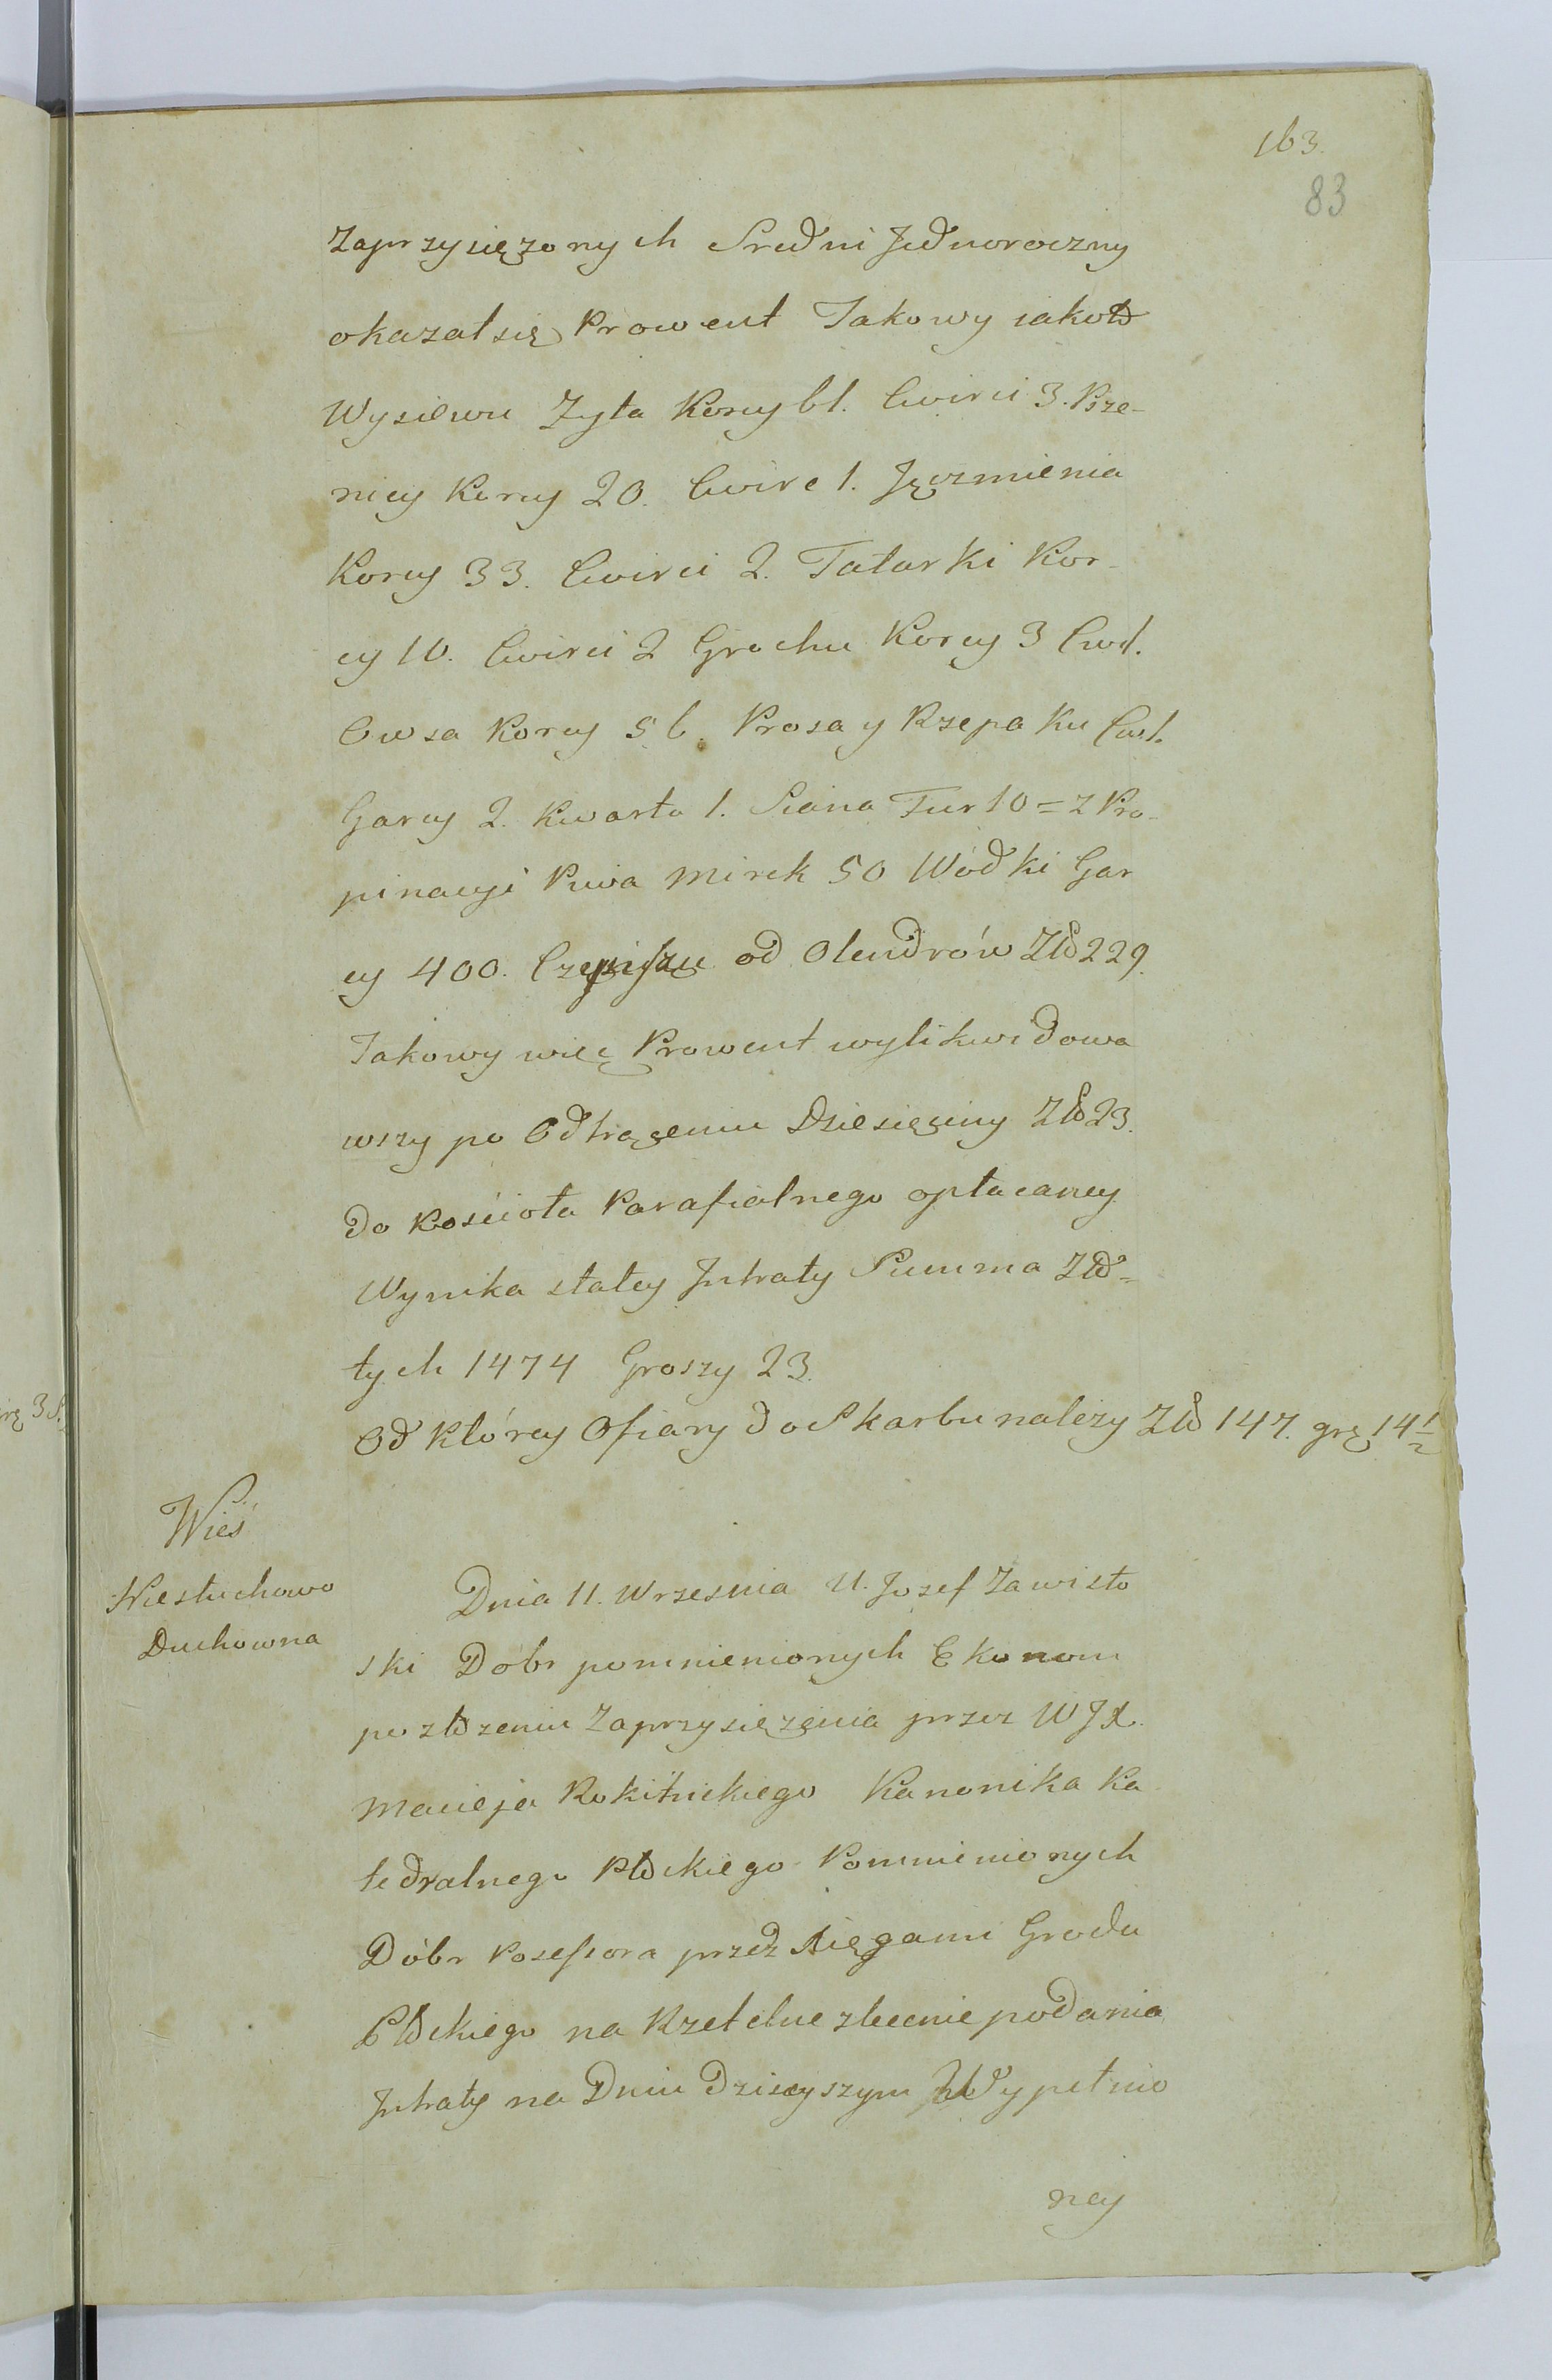 163.
83
Zaprzysięzonych Sredni Jednoroczny
okazał się Prowent Takowy iakoto
Wysiewu Zyta Korcy 61. Cwirci 3. Psze-
nicy Korcy 20. Cwirc 1. Jęczmienia
Korcy 33. Cwirci 2. Tatarki Kor-
cy 10. Cwirci 2 Grochu Korcy 3 Cw1.
Owsa Korcy 56. Prosa y Rzepaku Cw1.
Garcy 2. Kwarta 1. Siana Fur 10 = z Pro-
pinacyi Piwa Mirek 50 Wódki Gar
cy 400. Czynszu od Olendrów Zło 229.
Takowy więc Prowent wylikwidowa
wszy po Odtrąceniu Dziesięciny Zło 23.
do Kościoła Parafialnego opłacaney
Wynika stałey Intraty Summa Zło-
tych 1474 Groszy 23.
Od Którey Ofiary do Skarbu nalezy Zło 147. grz 14 1/2
Wieś
Niesłuchowo
Duchowna
Dnia 11. Wrzesnia U. Jozef Zawisto
ski Dobr pomnienionych Ekonom
po złozeniu Zaprzysięzenia przez WJX.
Macieja Rokitnickiego Kanonika Ka
tedralnego Płockiego Pomnienionych
Dóbr Posessora przed xięgami Grodu
Płockiego na Rzetelne zlecenie podania
Intraty na Dniu dzisieyszym Wypełnio
ney